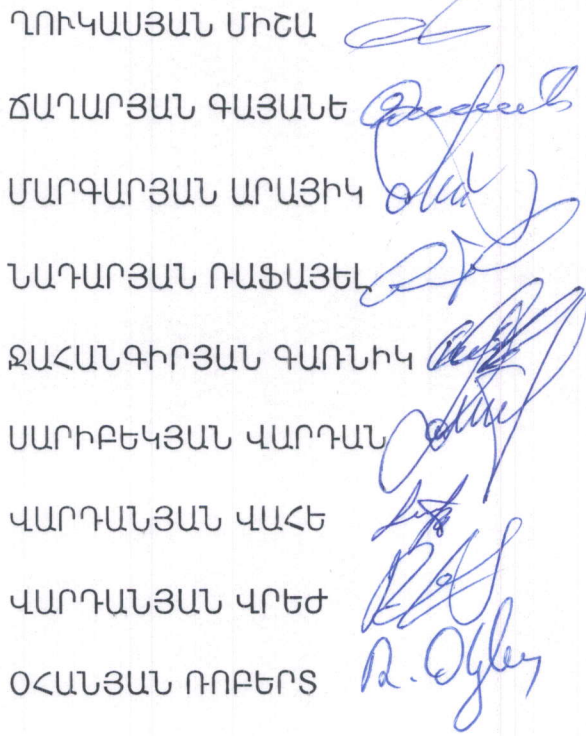 ՂՈՒԿԱՍՅԱՆ ՄԻՇԱ
ՃԱՂԱՐՅԱՆ ԳԱՅԱՆԵ
ՄԱՐԳԱՐՅԱՆ ԱՐԱՅԻԿ
ՆԱԴԱՐՅԱՆ ՌԱՖԱՅԵԼ
ՋԱՀԱՆԳԻՐՅԱՆ ԳԱՌՆԻԿ
ՍԱՐԻԲԵԿՅԱՆ ՎԱՐԴԱՆ
ՎԱՐԴԱՆՅԱՆ ՎԱՀԵ
ՎԱՐԴԱՆՅԱՆ ՎՐԵԺ
ՕՀԱՆՅԱՆ ՌՈԲԵՐՏ